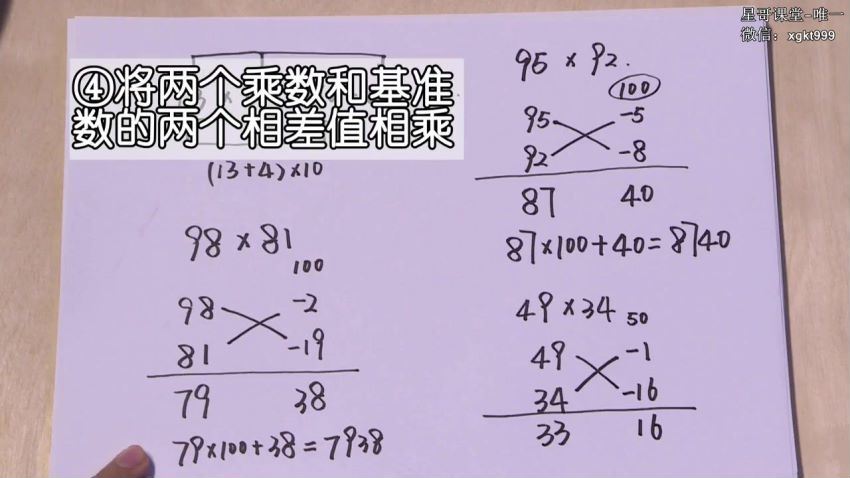 星哥课堂-唯一
微信：xgkt999
④将两个乘数和基准
数的两个相差值相乘
(13+4)×10
98×81
100
98 -2
81 -19
79 38
79×100+38=7938
95×92.
100
95 -5
92 -8
87 40
87×100+40=8740
49×34 50
49 -1
34 -16
33 16